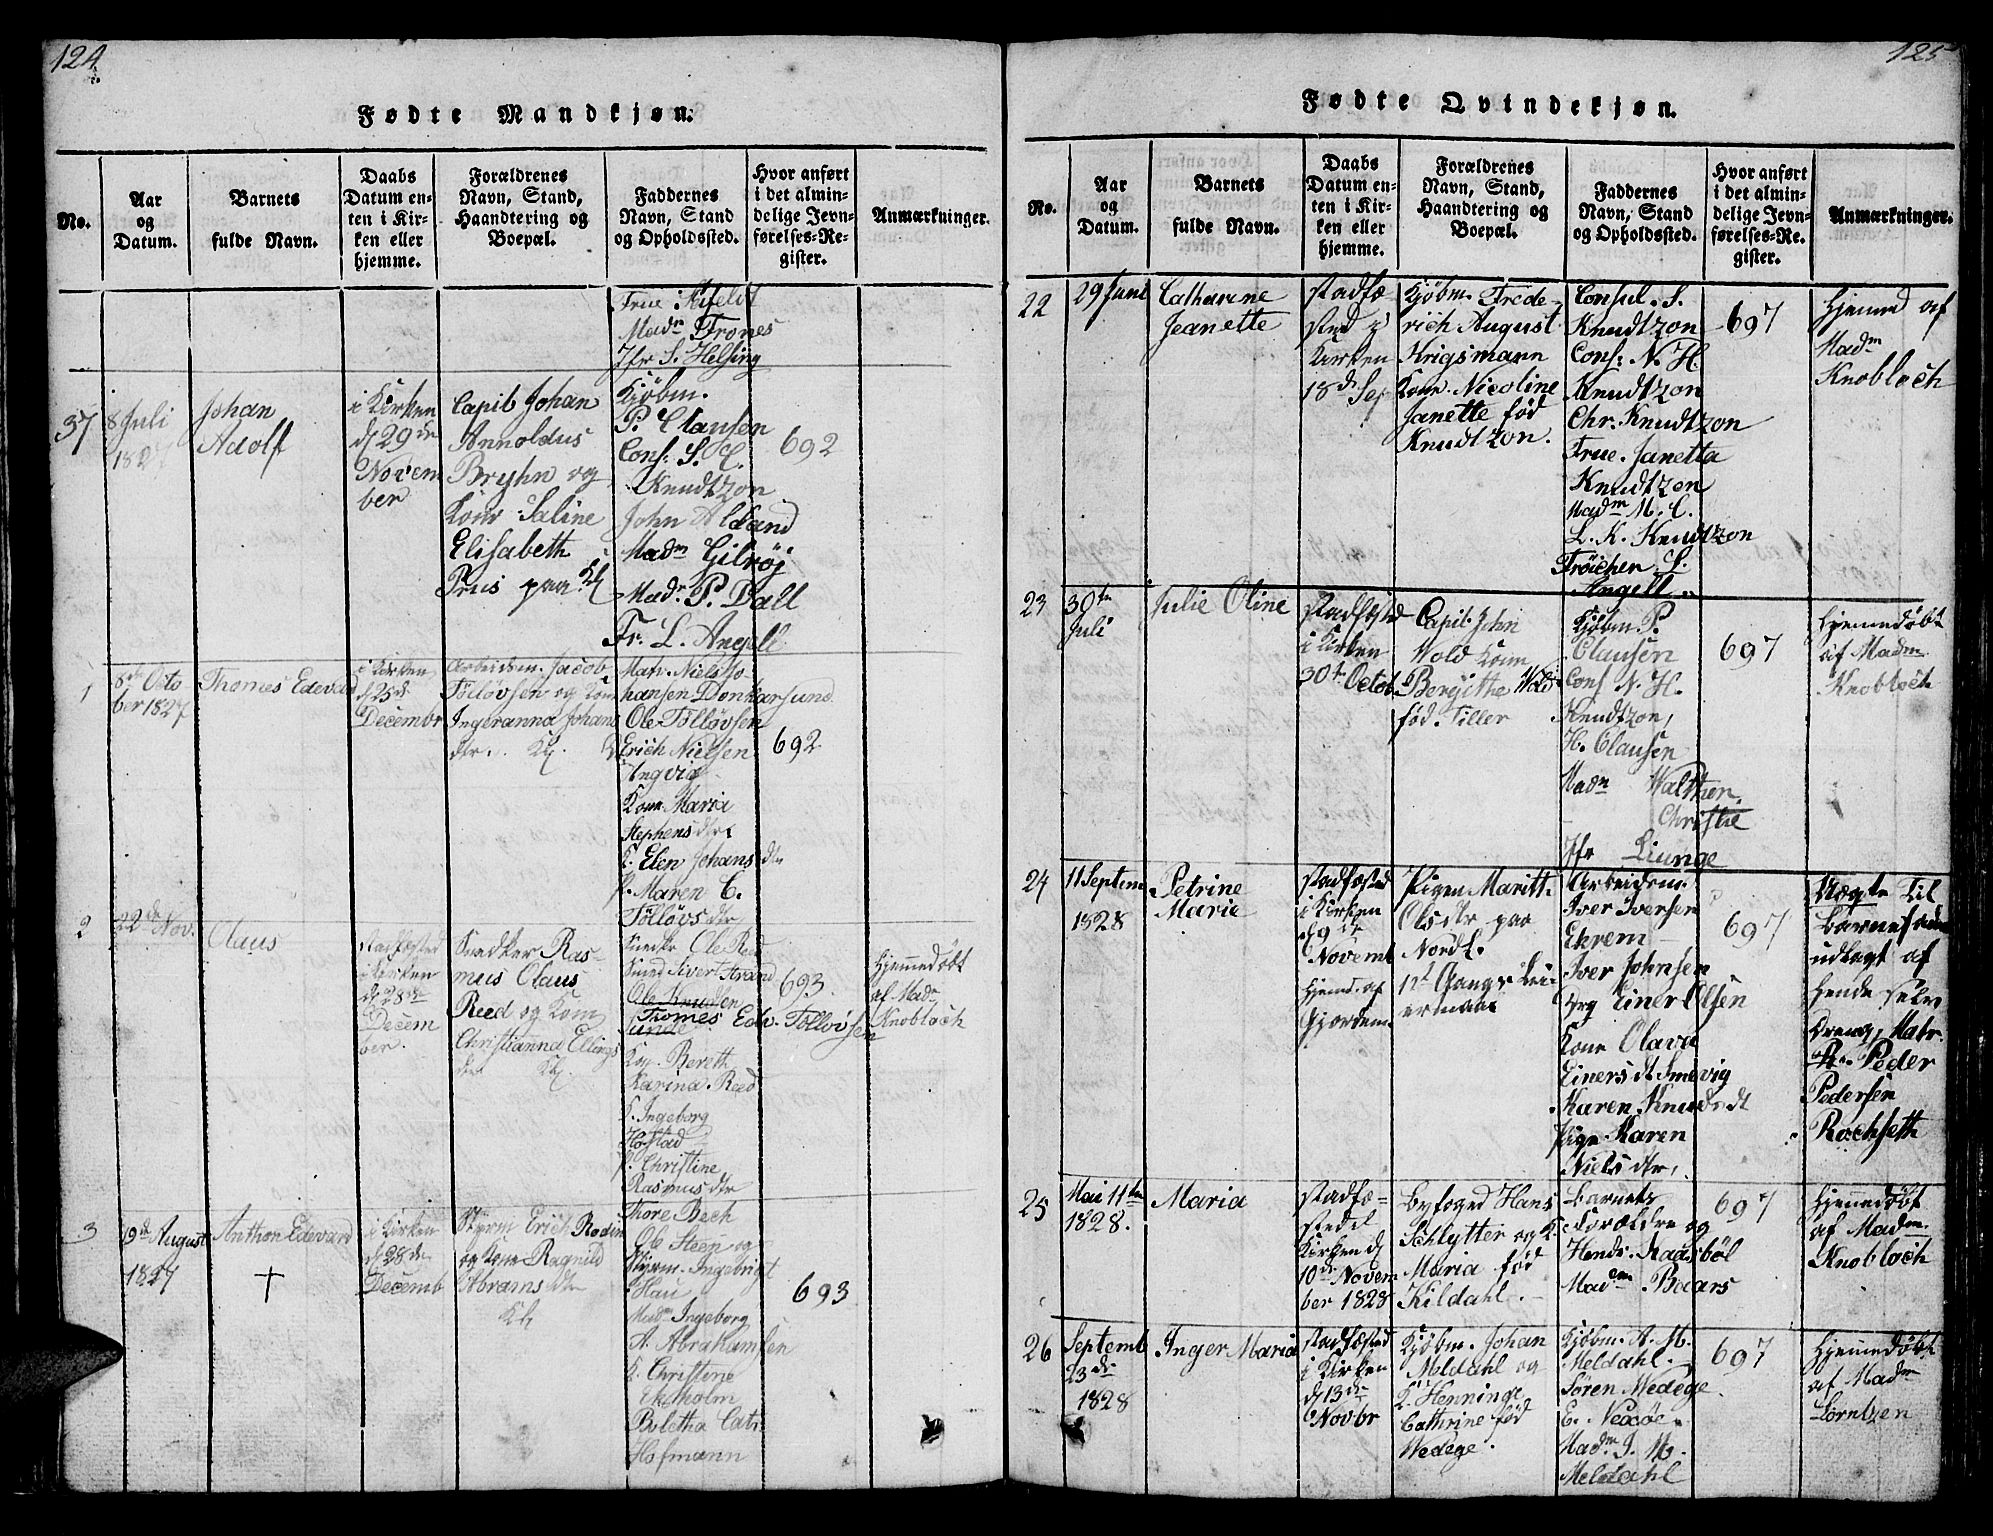 124
Fødte Mandkjøn.
No.
Aar
og
Datum.
Barnets
fulde Navn.
Daabs
Datum en-
ten i Kir-
ken eller
hjemme.
Forældrenes
Navn, Stand,
Haandtering og
Boepæl.
Faddernes
Navn, Stand
og Opholdssted.
Hvor anført
i det almin-
delige Jevn-
førelses-Re-
gister.
Anmærkninger.
Madm Trones
Jfr S. Helsing
37
8 Juli
1827
Johan
Adolf
i Kirken
d 29 de
Novem
ber
Capit Johan
Arnoldus
Bryhn og
Kone Saline
Elisabeth
Prus paa Kl
Kjøbm.
P. Clausen
Cons: S. C.
Knudtzon
John Aldand
Madm Gilrøj
Madm P. Dall
Fr. L. Angell
692
1
Octo
ber 1827
Thomes Edevard
i Kirken
d 25 de
Decembr
Arbeidsm. Jacob
Tölløvsen og Kone
Ingeranna Johans
dtr.
Matr. Niels Jo
hansen Donkarsund
Ole Tölløvsen
Erich Nielsen
Ingvig
Kone Maria
Stephensdtr
K. Elen Johans dtr
P. Maren C.
Tölløvs dtr
692
2
22 de Nov.
Claus
Stadfæsted
i Kirken
d 28 de
Decem
ber.
Snedker Ras-
mus Claus
Reed og Kone
Christianna Ellings
dtr
Snedkr Ole Reed
Smed Sivert Strand
Ole Knudsen
Thomes Edv. Tölløvsen
Berett
Karina Reed
K. Ingeborg
Hofstad
P. Christine
Rasmus dtr
693
Hjemmedöbt
af Madm
Knobloch
3
9 de August
1827
Anthon Edevard
†
i Kirken
d 28 de
Decemb
Styrm Erich Rodin
og Kone Ragnild
Abrams dtr
Thore Bech
Ole Steen og
Styrm. Ingebrigt
Hau
Madm Ingeborg
A. Abrahamsen
K. Christine
Ekeholm
Boletha Catr
Hofmann
693
125
Fødte Qvindekjøn.
No.
Aar
og
Datum.
Barnets
fulde Navn.
Daabs
Datum en-
ten i Kir-
ken eller
hjemme.
Forældrenes
Navn, Stand,
Haandtering og
Boepæl.
Faddernes
Navn, Stand
og Opholdssted.
Hvor anført
i det almin-
delige Jevn-
førelses-Re-
gister.
Anmærkninger.
22
29 Juni
Catharine
Jeanette
Stadfæ-
sted i
Kirken
18 d Sep
Kjøbm. Frede-
rich August
Krigsmann
Kone Nicoline
Janette fød
Knudtzon.
Consul. S.
Knudtzon
Cons: N. H.
Knudtzon
Chr. Knudtzon
Frue Janetta
Knudtzon
Madm M. C.
L. K. Knudtzon
Frøichen S.
Angell.
697
Hjemmed af
Madm
Knobloch
23
30 te
Juli
Julie Oline
Stadfæsted
i Kirken
30 t. Octob
Capit. John
Wold Kone
Bergithe Wold
fød Tiller
Kjøbm P.
Clausen
Cons N. H.
Knudtzon,
H. Clausen
Madm Walther
Christie
Jfr Liunge
697
Hjemmedöbt
af Madm
Knobloch
24
11 Septem
1828
Petrine
Maria
Stadfæsted
i Kirken
d 9 de
Novemb
Hjemd. af
Gjordem.
Pigen Maritt
Olsdtr paa
Nordl.
1st Gangs Lei
ermaal
Arbeidsm.
Iver Iversen
Ekrem
Iver Johnsen
Drg Einer Olsen
Kone Olava
Einers dt Smevig
Karen Knuds dt
Pige Karen
Niels dtr,
697
Ægte Til
Barnefader
udlagt af
hende selv
Dreng, Matr.
Peder
Pedersen
Rochseth
25
Mai 11 te
1828.
Maria
Stadfæ-
sted i
Kirken d
10 de Novem
ber 1828
Byfoged Hans
Schlytter og K.
Maria fød
Kildahl.
Barnets
Forældre og
Hendr. Kaasböl
Madm Baars
697
Hjemmedöbt
af Madm
Knobloch
26
Septemb
23 de
1828
Inger Maria
Stadfæsted
i Kirken
d 13 de
Novbr
Kjøbm. Johan
Meldahl og
K. Henninge
Cathrine fød
Wedege.
Kjøbm. A. M.
Meldahl.
Sören Wedege
E. Nexöe
Madm J. M.
Meldahl
697
Hjemmedöbt
af Madm
Lorntzen